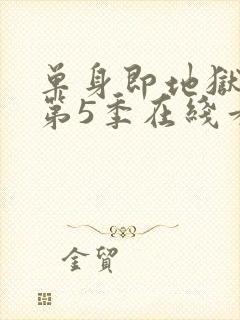 单身即地獄
第5季在线
金貿